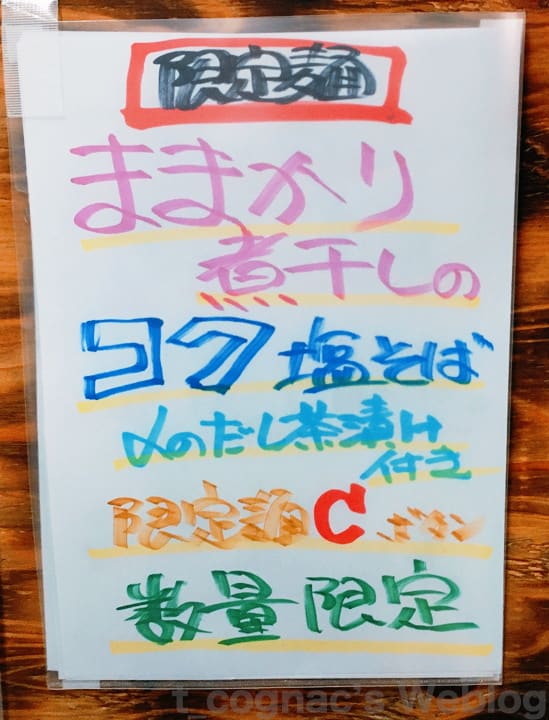 限定麺
ままかり
煮干しの
コク塩そば
〆のだし茶漬け
付き
限定麺Cボタン
数量限定
t_cognac's Weblog